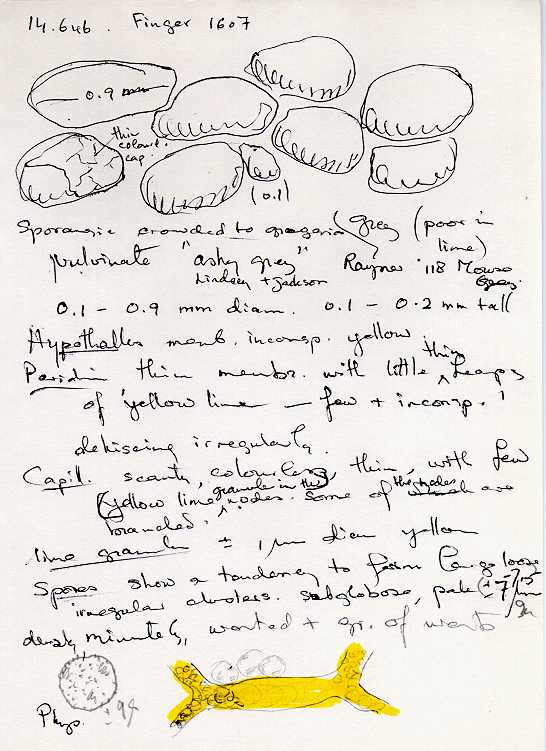 14.646. Finger 1607
0.9 mm
thin
colourl.
cap.
(0.1)
Sporangia crowded to gregaria (grey (poor in
lime)
pulvinate "ashy grey" Rayner 118 Mouse
Grey.
Lindsey + Jackson
0.1 - 0.9 mm diam. 0.1 - 0.2 mm tall
Hypothallus memb. inconsp. yellow
Peridium thin membr. with little thin heaps
of yellow lime - few + inconsp.
dehiscing irregularly.
Capil. scanty, colourless, thin, with few
(yellow lime granules in the nodes. Some of the nodes are
branched.
lime granules ± 1 µm diam yellow
Spores show a tendency to form large loose
irregular clusters. subglobose, pale (± 7
densely minutely, warted + gr. of warts
± 9
Phys.